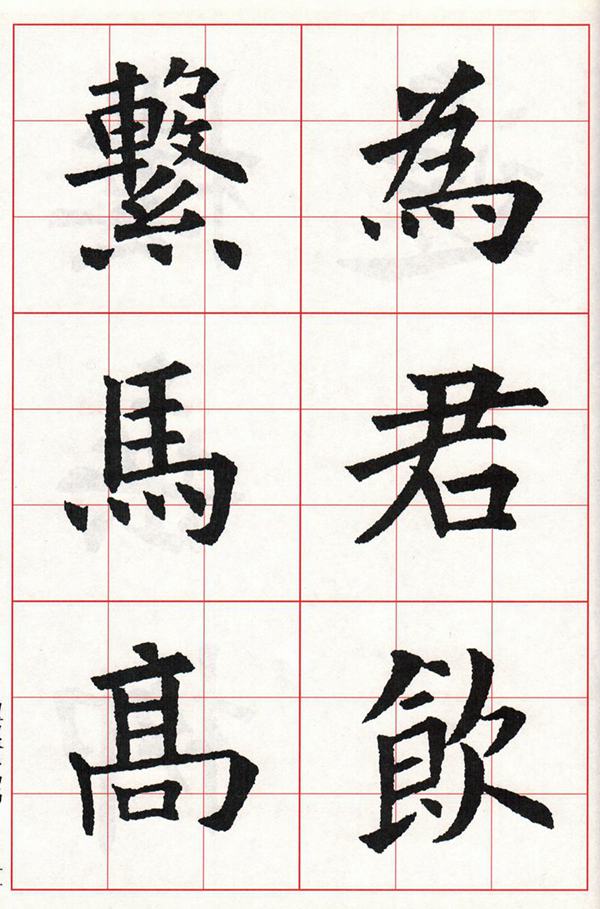 為君飲
繫馬高